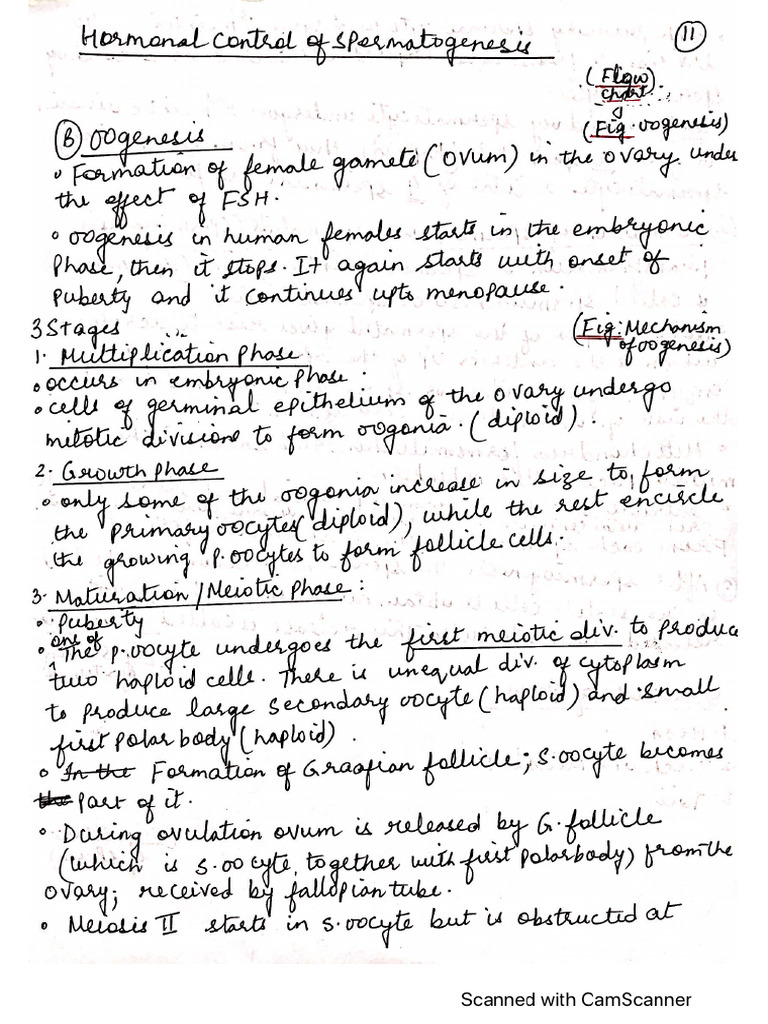 Hormonal Control of Spermatogenesis
11
(Flow
chart)
(Fig. oogenesis)
B Oogenesis
• Formation of female gamete (ovum) in the ovary under
the effect of FSH.
• oogenesis in human females starts in the embryonic
Phase, then it stops. It again starts with onset of
puberty and it continues upto menopause.
3 Stages
(Fig: Mechanism
of oogenesis)
1. Multiplication phase
• occurs in embryonic phase.
• cells of germinal epithelium of the ovary undergo
mitotic divisions to form oogonia. (diploid).
2. Growth phase
• only some of the oogonia increase in size to form
the primary oocytes (diploid), while the rest encircle
the growing p. oocytes to form follicle cells.
3. Maturation / Meiotic Phase :
• Puberty
• one of The p. oocyte undergoes the first meiotic div. to produce
two haploid cells. There is unequal div. of cytoplasm
to produce large secondary oocyte (haploid) and small
first polar body (haploid).
• In the Formation of Graafian follicle; s. oocyte becomes
the part of it.
• During ovulation ovum is released by G. follicle
(which is s. oocyte, together with first polar body) from the
ovary; received by fallopian tube.
• Meiosis II starts in s. oocyte but is obstructed at
Scanned with CamScanner